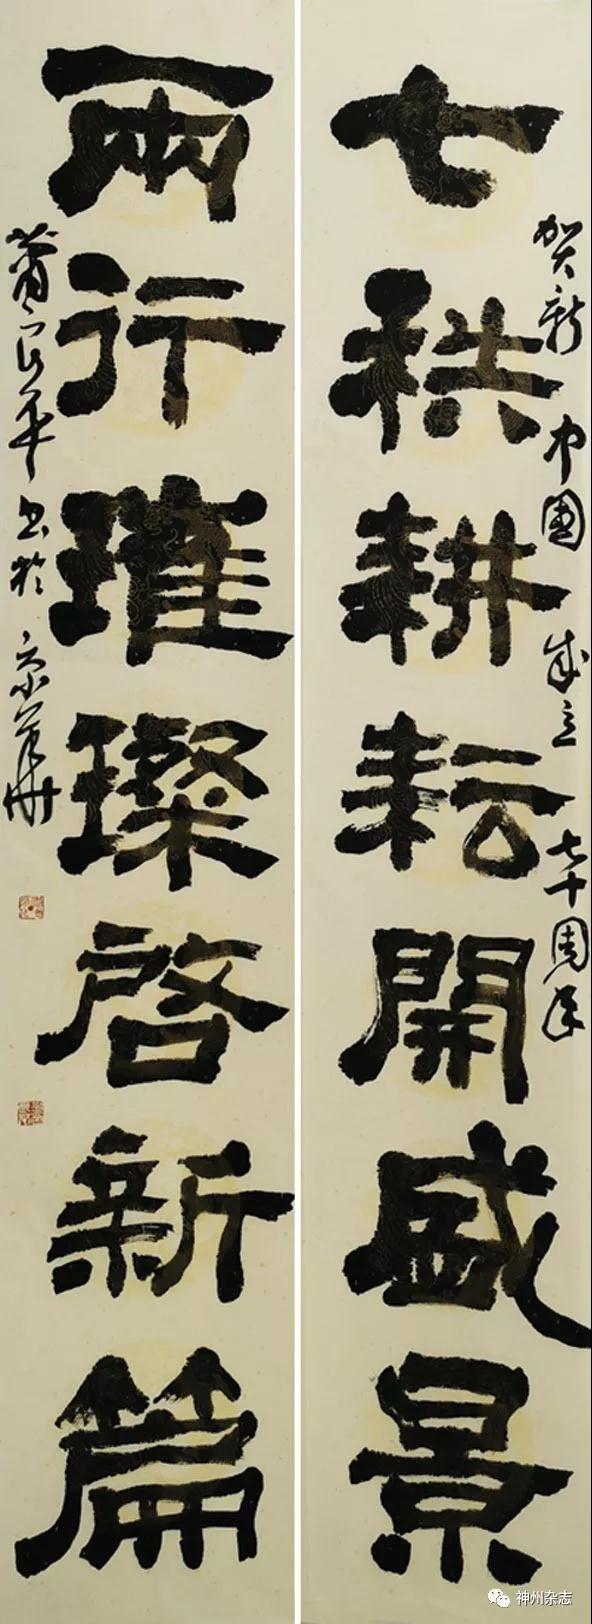 賀新中國成立七十周年
七秩耕耘開盛景
兩行璀璨啓新篇
蕭良平书於京華
神州杂志